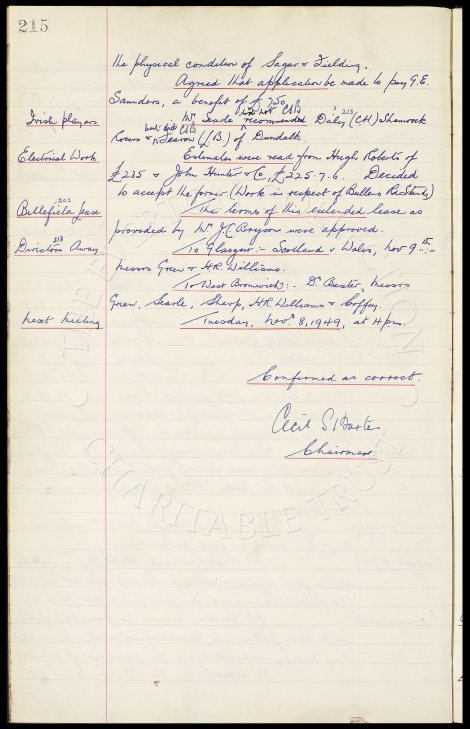 215
the physical condition of Sagar & Fielding.
Agreed that application be made to pay G.E.
Saunders, a benefit of £750.
Irish players
Mr Searle did not CSB recommended Daley (C.H.) Shamrock 213
Rovers & but did CSB Fearon (I.B.) of Dundalk.
Electrical Work
Estimates were read from Hugh Roberts of
£235 & John Hunter & Co, £225-7.6. Decided
to accept the former (Work in respect of Bullens Rd Stands)
Bellefield Lease 202
The terms of this extended lease as
provided by Mr J.C. Bryson were approved.
Directors Away 213
To Glasgow:- Scotland v Wales, Nov 9th:-
Messrs Green & H.R. Williams.
To West Bromwich:- Dr Baxter, Messrs
Green, Searle, Sharp, H.R. Williams & Coffey.
next meeting
Tuesday, Novr 8, 1949, at 4 pm.
Confirmed as correct.
Cecil S Baxter
Chairman
CHARITABLE TRUST